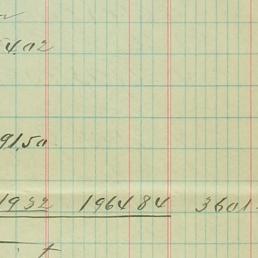 54.02
91.50
1932 1964 84 3601